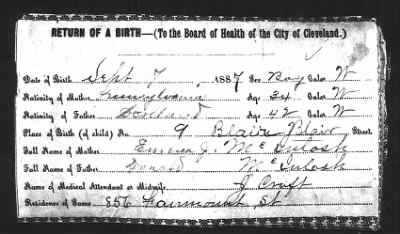 RETURN OF A BIRTH—(To the Board of Health of the City of Cleveland.)
Date of Birth Sept 7, 1887 Sex Boy Color W
Nativity of Mother Pennsylvania Age 34 Color W
Nativity of Father Scotland Age 42 Color W
Place of Birth (of child) No. 9 Blair Street
Full Name of Mother Emma J. McIntosh
Full Name of Father McIntosh
Name of Medical Attendant or Midwife J Croft
Residence of Same 856 Fairmount St